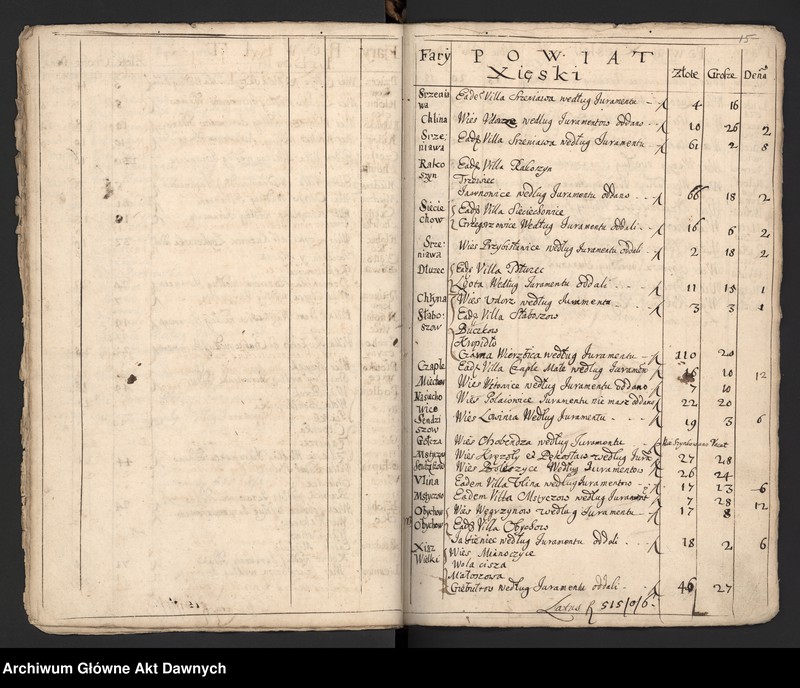 15
Fary POWIAT Xięski Złote Grosze Dena
Srzenia wa Eadē Villa Srzeniawa według Juramentu — 4 16
Chlina Wies według Juramentow oddano 10 26 2
Srze: niawa Eadē Villa Szreniawa według Juramentu 61 2 8
Rako szyn Eadē Villa Rakoszyn
Trzebiec
Janowice według Juramentu oddano 66 18 2
Siecie chow Eadē Villa Sieciechowice
Grzegorzowice Według Juramentu oddali 16 6 2
Srze: niawa Wies Przybisławice według Juramentu oddali 2 18 2
Dluzec Eadē Villa Dłuzec
Lgota Według Juramentu oddali 11 15 1
Chlyna Wies Udorz według Juramentu 3 3 1
Słabo: szow Eadē Villa Słaboszow
Buczkow
Krępidło
Czarna Wierzbica według Juramentu 110 20
Czaple Eadē Villa Czaple Małe według Juramentu 10 12
Miechow Wies według Juramentu oddano 7 10
Nasiecho wice Wies Polanowice Juramentu nie masz oddano 22 20
Sendzi szow Wies Łowinia Według Juramentu 19 3 6
Gołcza Wies Chobendza według Juramentu
Mstyczow Wies Krzęzoły et Pękosław według Jura: 27 28
Wies Boleszyce Według Juramentow 26 24
Ulina Eadem Villa Ulina według Juramentow 17 13 6
Mstyczow Eadem Villa Mstyczow według Jurament 7 28
Obychow Wies Węgrzynow według Juramentu 17 8 12
Obychow Eadē Villa Obychow
Jasieniec według Juramentu oddali 18 2 6
Xiąz Wielki Wies Mianoczyce
Wola cisza
Małoszowa
Giebułtow według Juramentu oddali 46 27
Latus f 515/0/6
Archiwum Główne Akt Dawnych